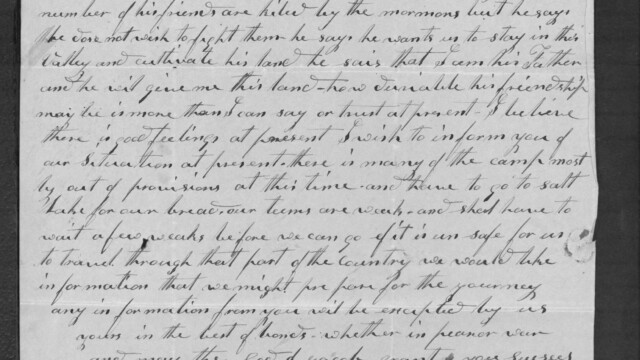 number of his friends are kiled by the mormons but he says
he dose not wish to fight them he says he wants us to stay in this
vally and cultivate his land he sais that I am his Father
and he will give me this land - how durable his friendship
may be is more than I can say or trust at present - I believe
there is good feelings at present I wish to inform you of
our situation at present - there is many of the camp most
by out of provisions at this time - and have to go to salt
lake for our bread - our teams are weak - and shal have to
wait a few weaks before we can go if it is un safe for us
to travel through that part of the country we would like
information that we might pre pare for the journey
any in formation from you wil be excepted by us
yours in the best of bonds - whether in peace or war
and may the God of grant you success